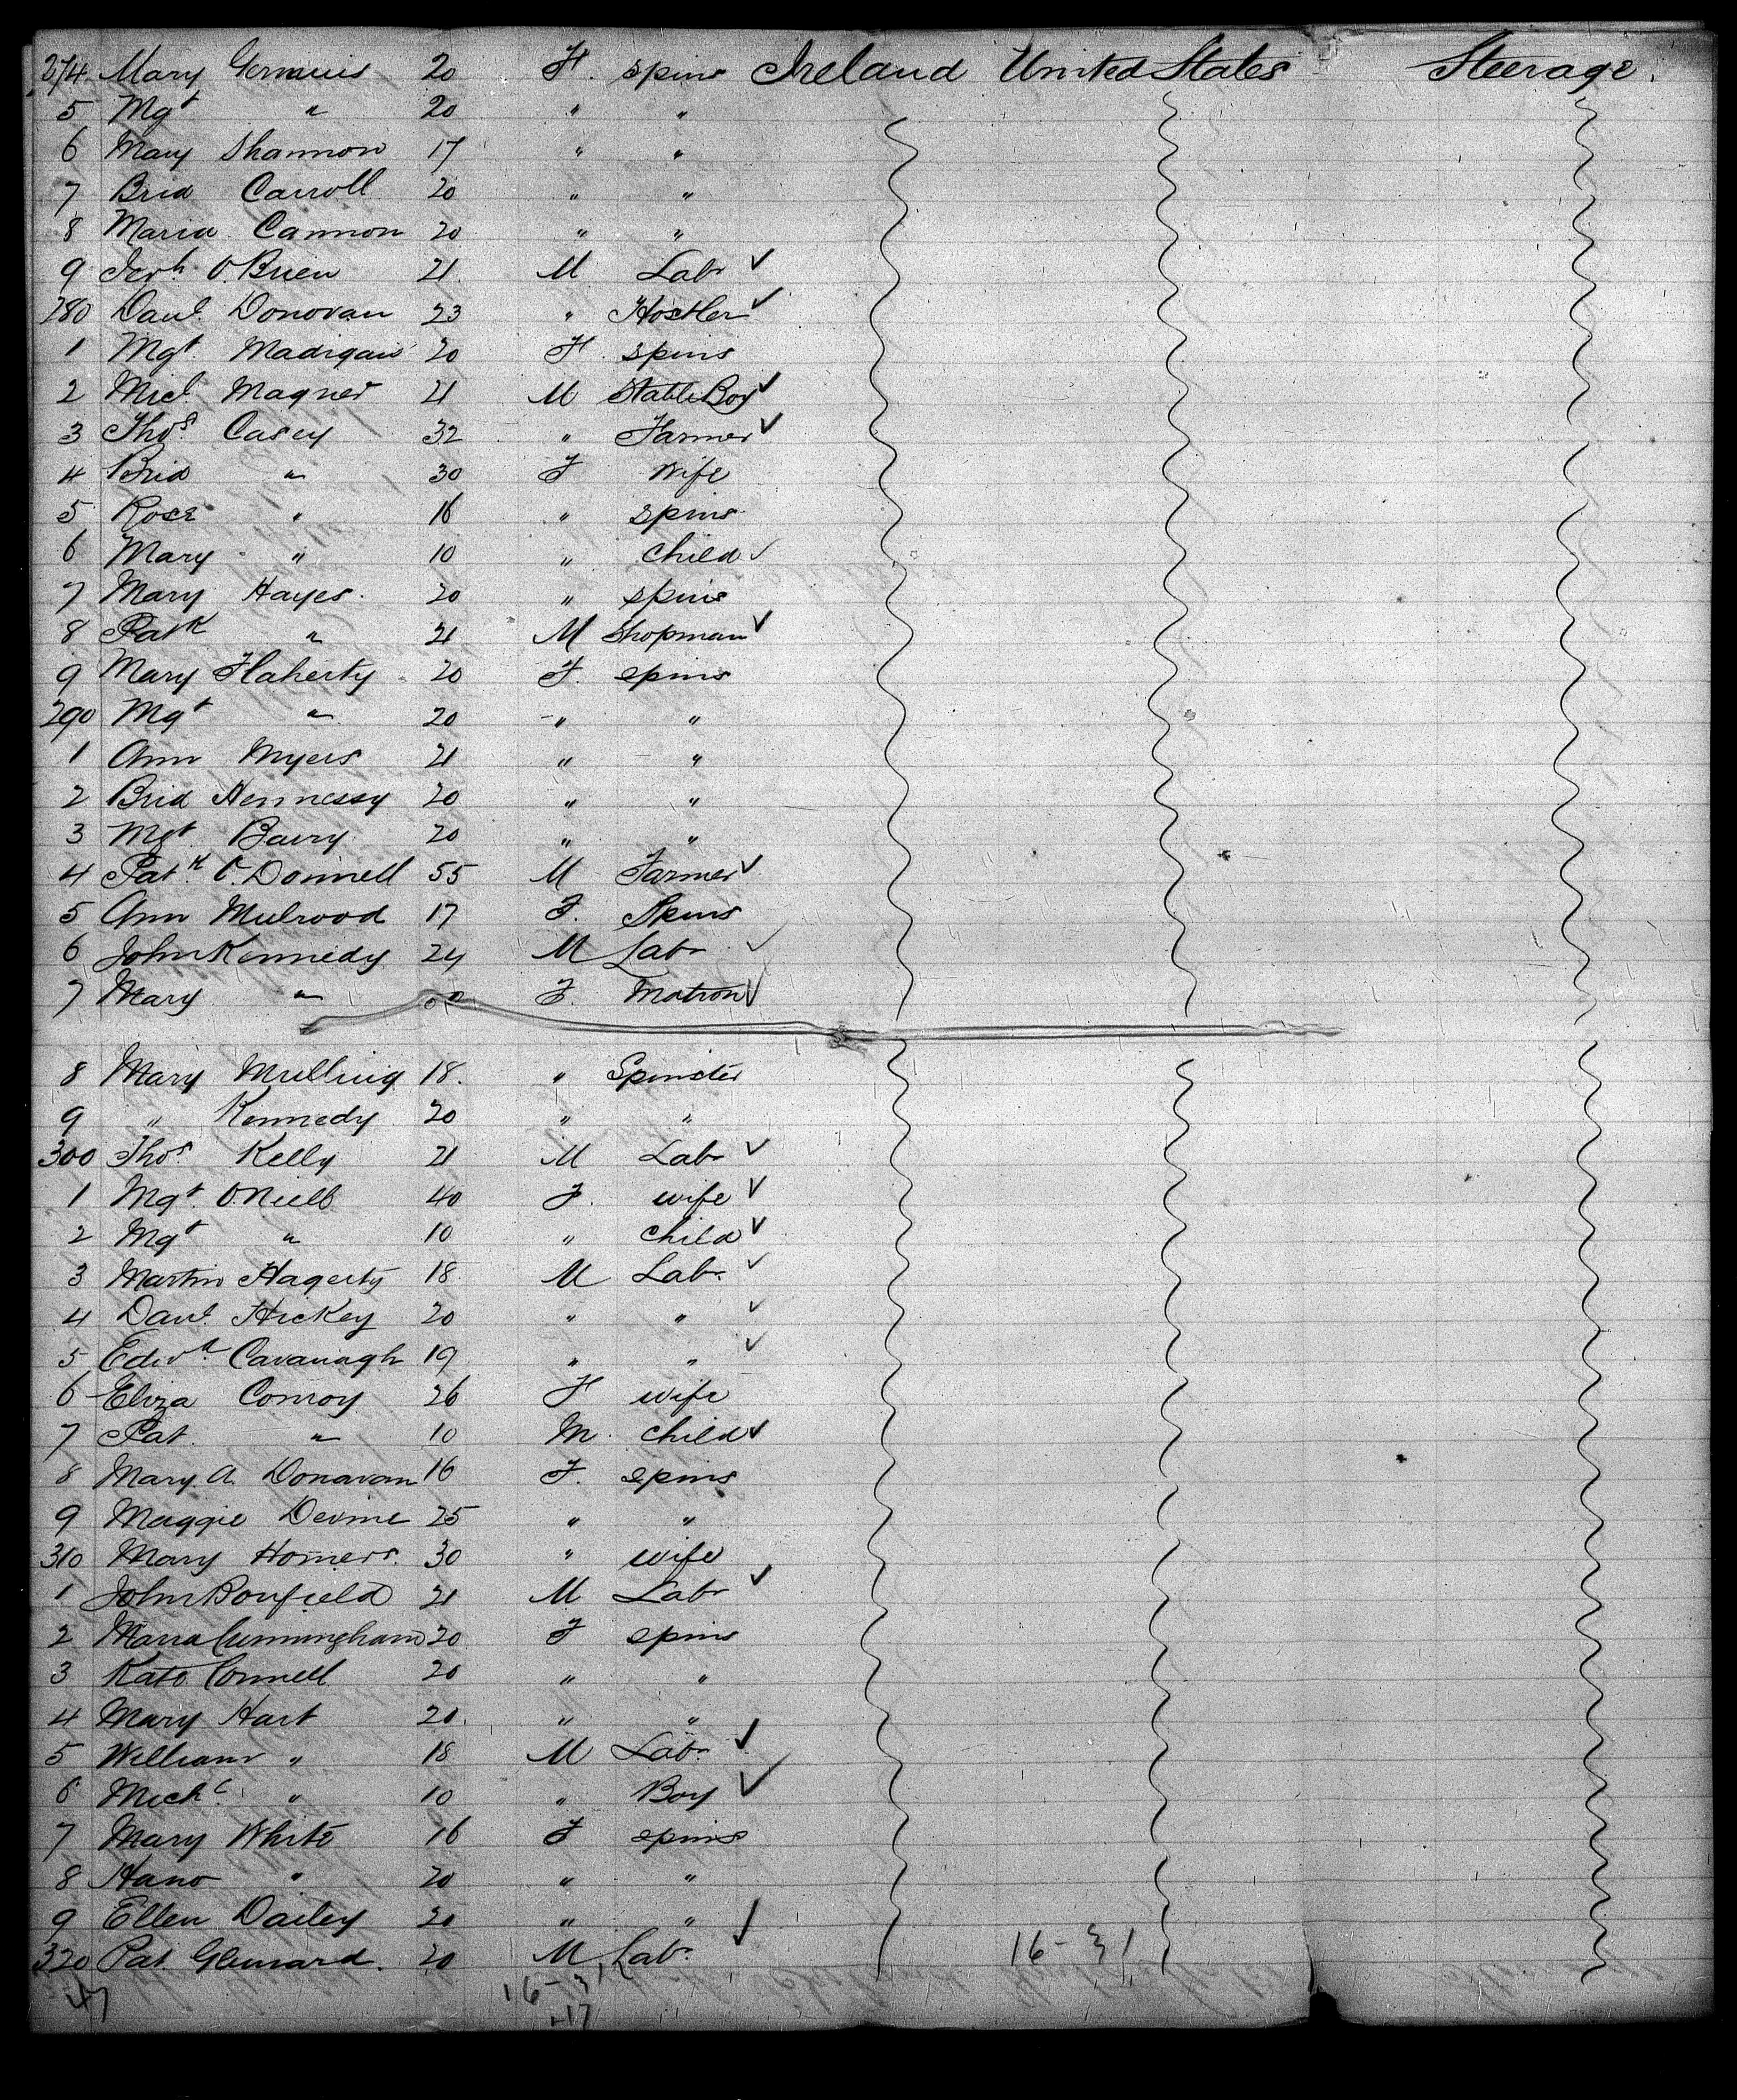 274 Mary 20 F. spins Ireland United States Steerage.
5 Mgt " 20 " "
6 Mary Shannon 17 " "
7 Brid Carroll 20 " "
8 Maria Cannon 20 " "
9 Jerh. O'Brien 21. M Labr ✓
280 Danl. Donovan 23 " Hostler ✓
1 Mgt. Madigan 20 F. spins
2 Micl. Magner 21 M Stable Boy ✓
3 Thos. Casey 32 " Farmer ✓
4 Brid " 30 F Wife
5 Rose " 16 " spins
6 Mary " 10 " Child ✓
7 Mary Hayes. 20 " spins
8 Patk " 21 M Shopman ✓
9 Mary Flaherty 20 F. spins
290 Mgt " 20 " "
1 Ann Myers 21 " "
2 Brid Hennessy 20 " "
3 Mgt. Barry 20 " "
4 Patk. O'Donnell 55 M Farmer ✓
5 Ann Mulrood 17 F. Spins
6 John Kennedy 24 M Labr ✓
7 Mary " F. Matron ✓
8 Mary Mulling 18. " Spinster
9 " Kennedy 20 " "
300 Thos. Kelly 21 M Labr ✓
1 Mgt. O'Neill 40 F. wife ✓
2 Mgt " 10 " child ✓
3 Martin Hagerty 18 M Labr. ✓
4 Danl. Hickey 20 " " ✓
5 Edwd. Cavanagh 19 " " ✓
6 Eliza Conroy 26 F wife
7 Pat. " 10 M. child ✓
8 Mary A. Donavan 16 F. spins
9 Maggie Devine 25 " "
310 Mary Homers. 30 " wife
1 John Bonfield 21 M Labr ✓
2 Maria Cunningham 20 F spins
3 Kate Connell 20 " "
4 Mary Hart 20. " "
5 William " 18 M Labr. ✓
6 Michl. " 10 " Boy ✓
7 Mary White 16 F spins
8 Hano " 20 " "
9 Ellen Dailey 20 " " ✓
320 Pat Glennard. 20 M Labr. 16-31
47 16-31
17